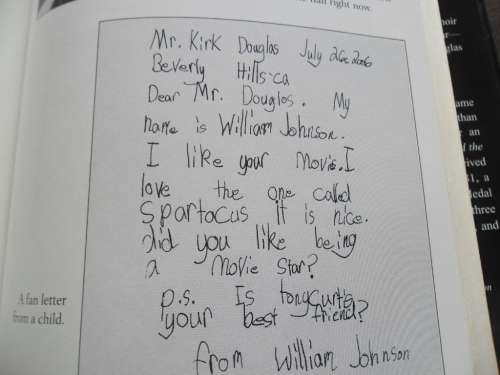 hall right now.
Mr. Kirk Douglas July 26c 2006
Beverly Hills-ca
Dear Mr. Douglos. My
name is William Johnson.
I like your movie. I
love the one called
Spartocus it is nice.
did you like being
a Movie Star?
p.s. Is tonycurtis
your best friend?
from William Johnson
A fan letter
from a child.
glas
ame
than
an
d the
rived
1, a
ledal
three
and